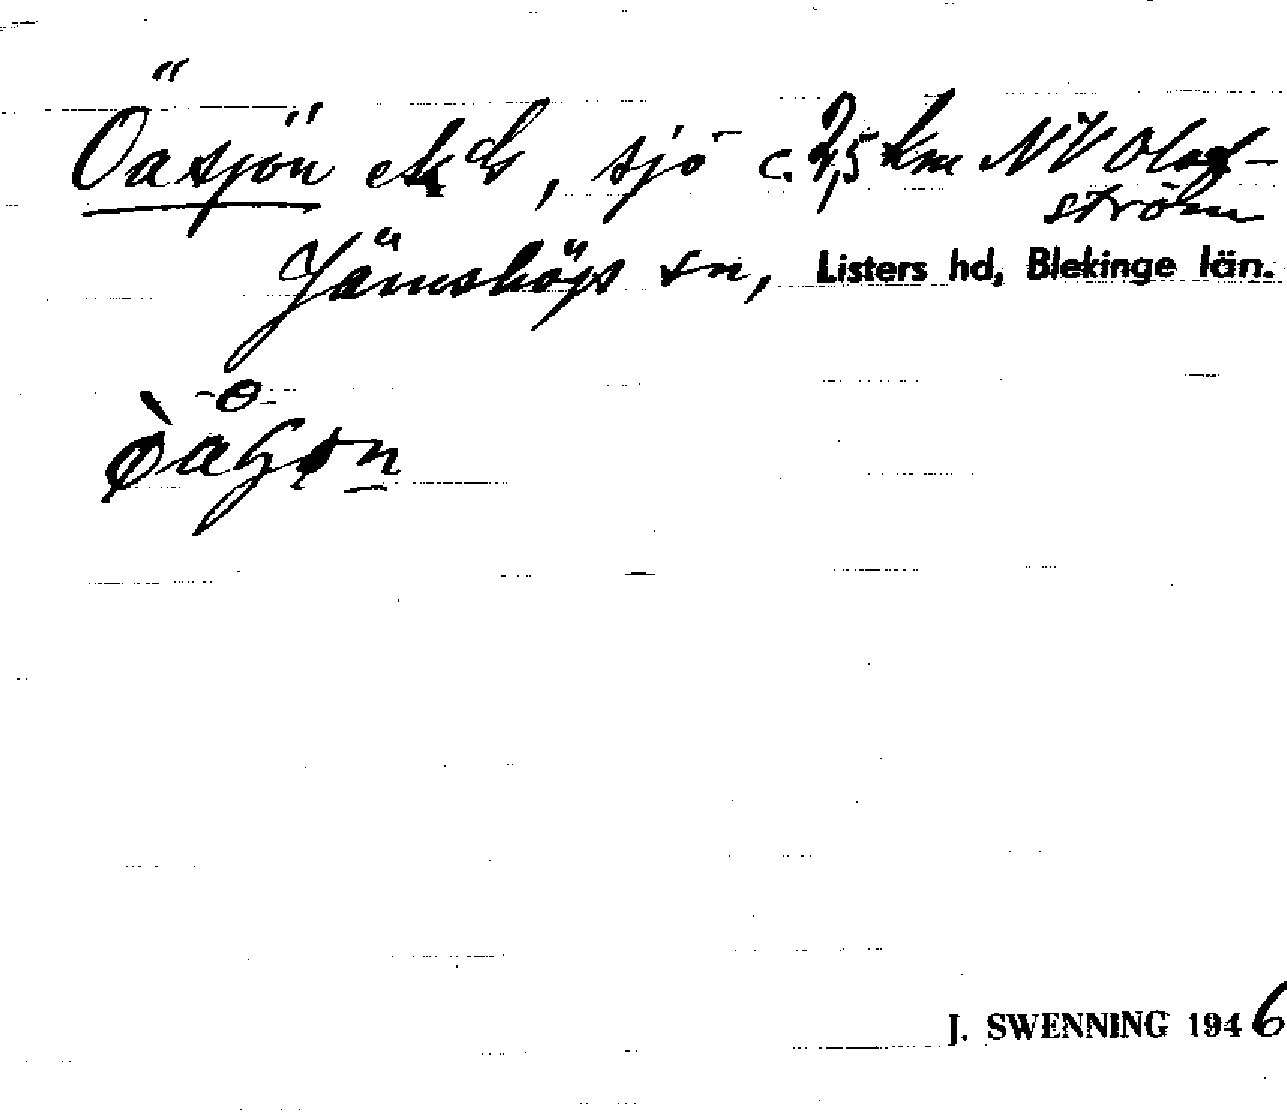 Öasjön ekbl, sjö c. 2,5 km NV Olof-
ström
Jämshögs sn, Listers hd, Blekinge län.
J. SWENNING 1946